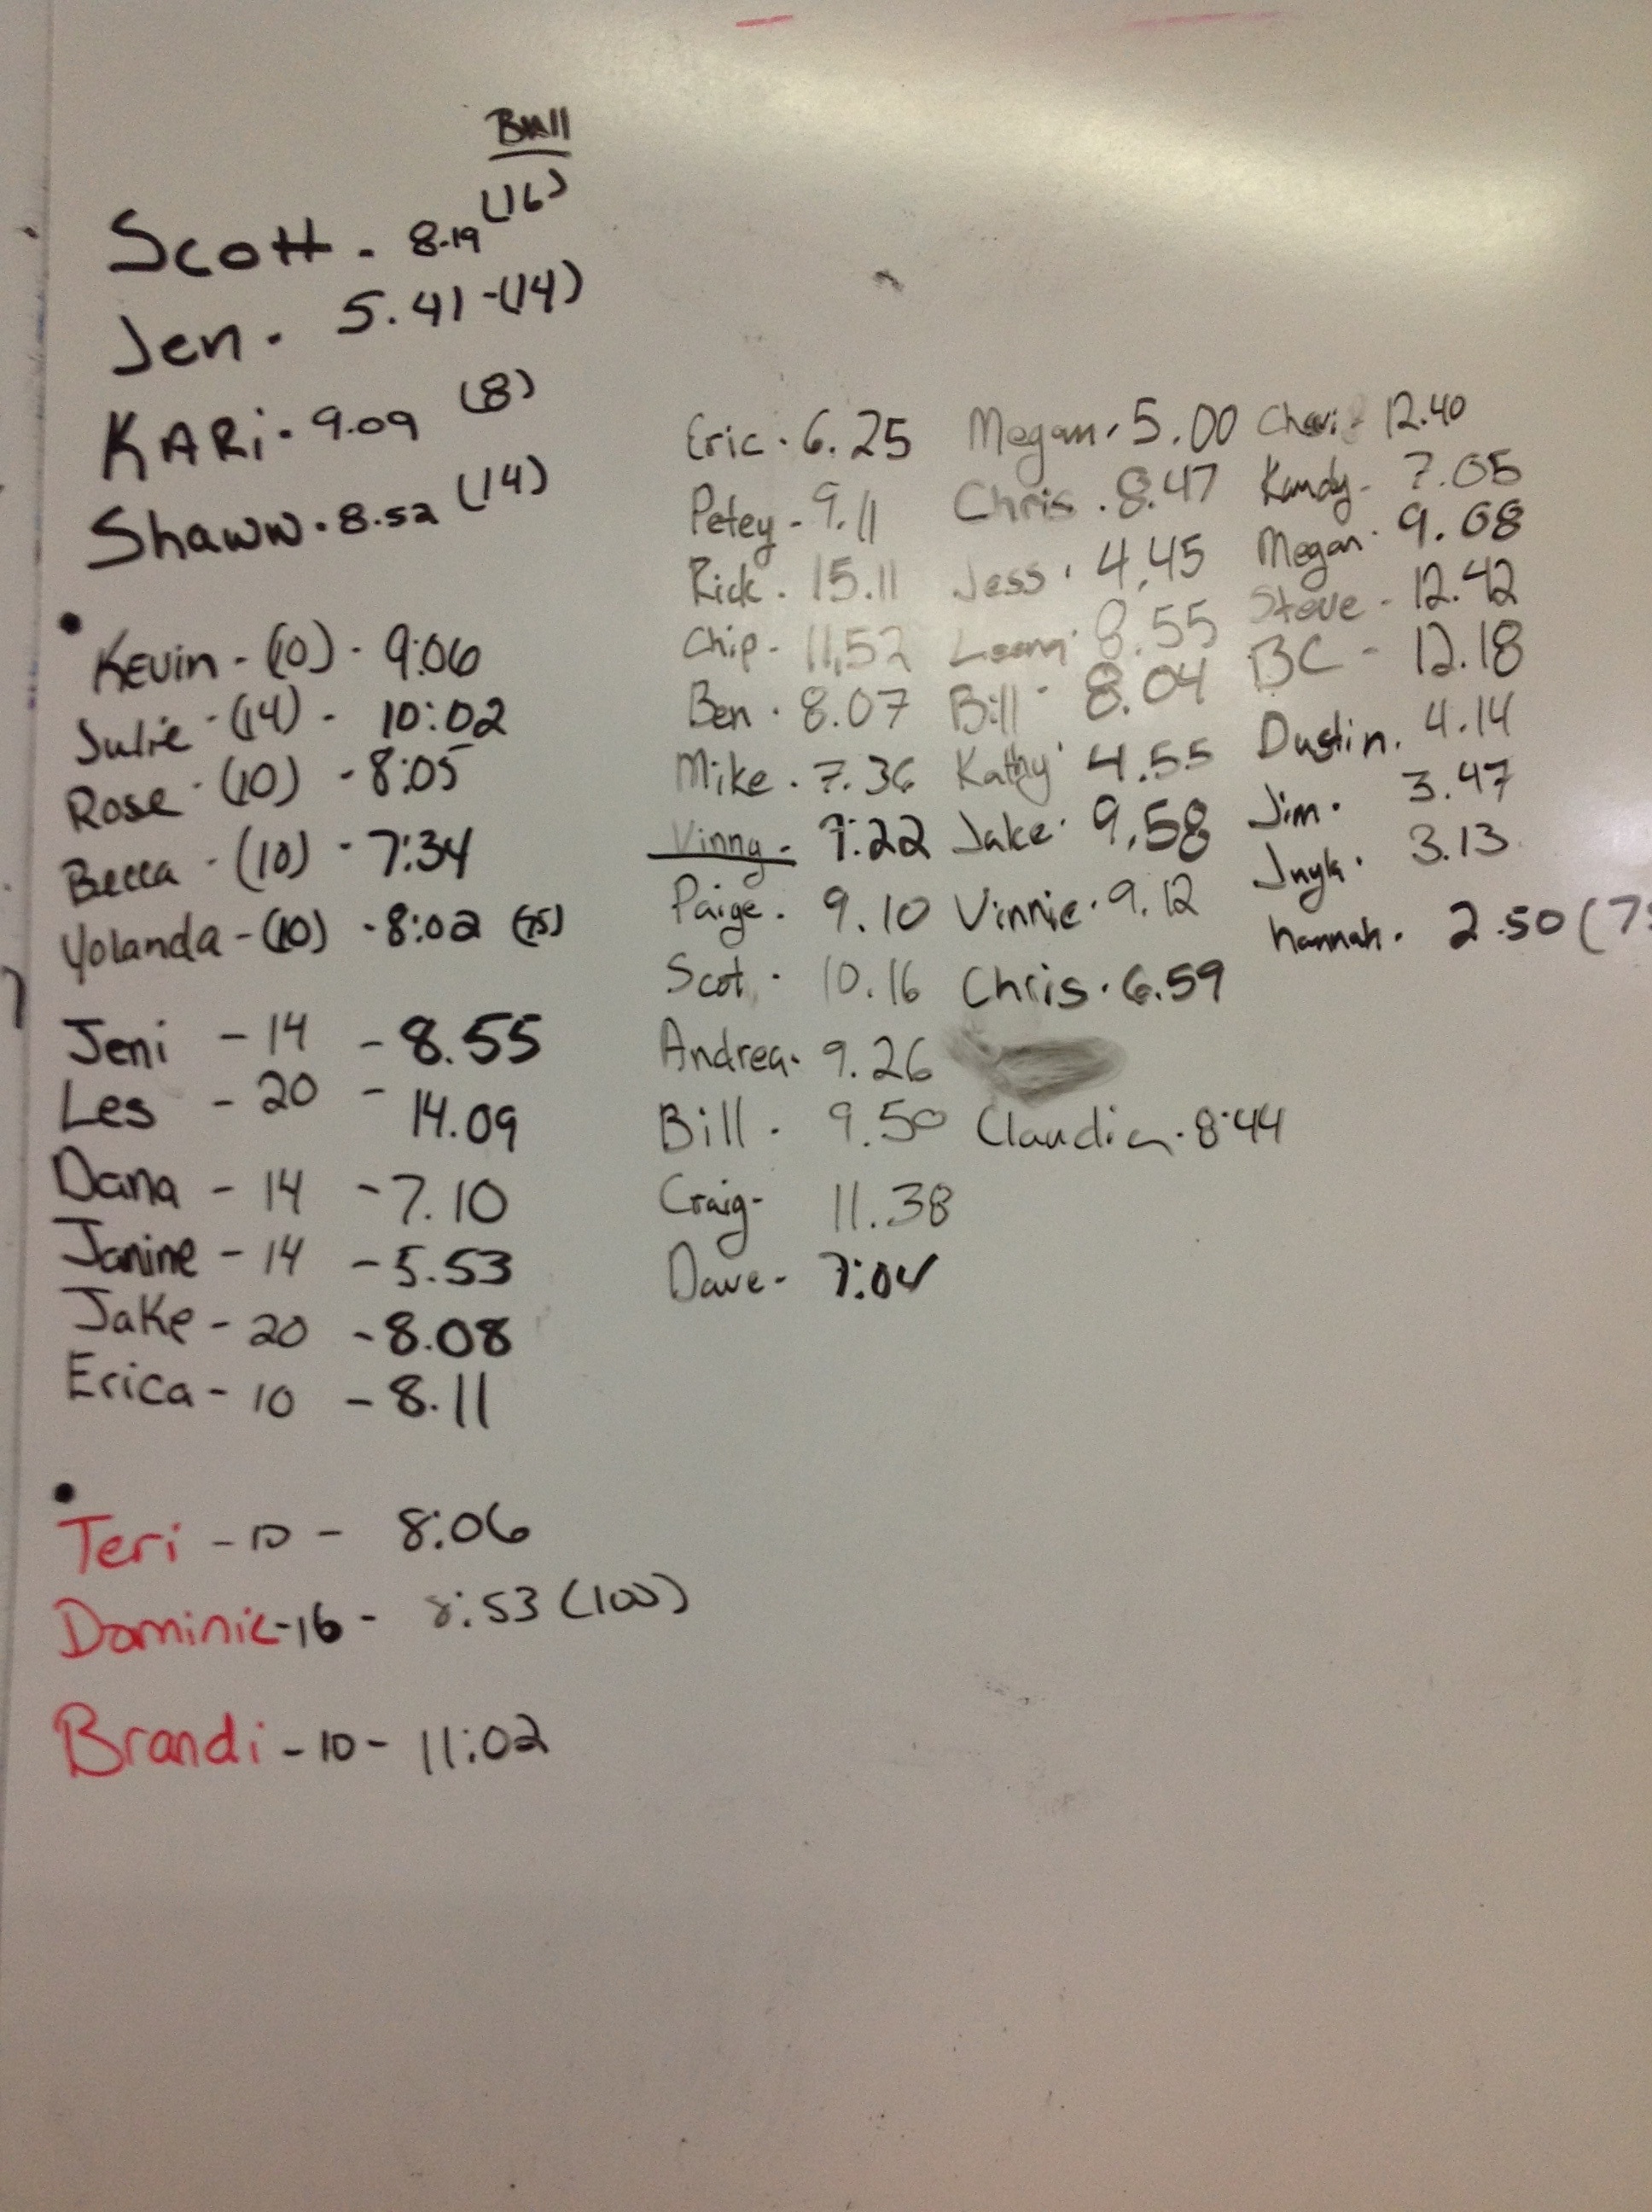 Ball
Scott - 8.19 (16)
Jen - 5.41 - (14)
KARi - 9.09 (8)
Shawn - 8.52 (14)
Kevin - (10) - 9:06
Julie - (14) - 10:02
Rose - (10) - 8:05
Becca - (10) - 7:34
Yolanda - (10) - 8:02 (15)
Jeni - 14 - 8.55
Les - 20 - 14.09
Dana - 14 - 7.10
Janine - 14 - 5.53
Jake - 20 - 8.08
Erica - 10 - 8.11
Teri - 10 - 8:06
Dominic - 16 - 8:53 (100)
Brandi - 10 - 11:02
Eric - 6.25
Petey - 9.11
Rick - 15.11
Chip - 11.52
Ben - 8.07
Mike - 7.36
Vinny - 7:22
Paige - 9.10
Scot - 10.16
Andrea - 9.26
Bill - 9.50
Craig - 11.38
Dave - 7:04
Megan - 5.00
Chris - 8.47
Jess - 4.45
8.55
Bill - 8.04
Kathy - 4.55
Jake - 9.58
Vinnie - 9.12
Chris - 6.59
Claudia - 8:44
12.40
Kandy - 7.05
Megan - 9.08
Steve - 12.42
BC - 12.18
Dustin - 4.14
Jim - 3.47
3.13
hannah - 2.50